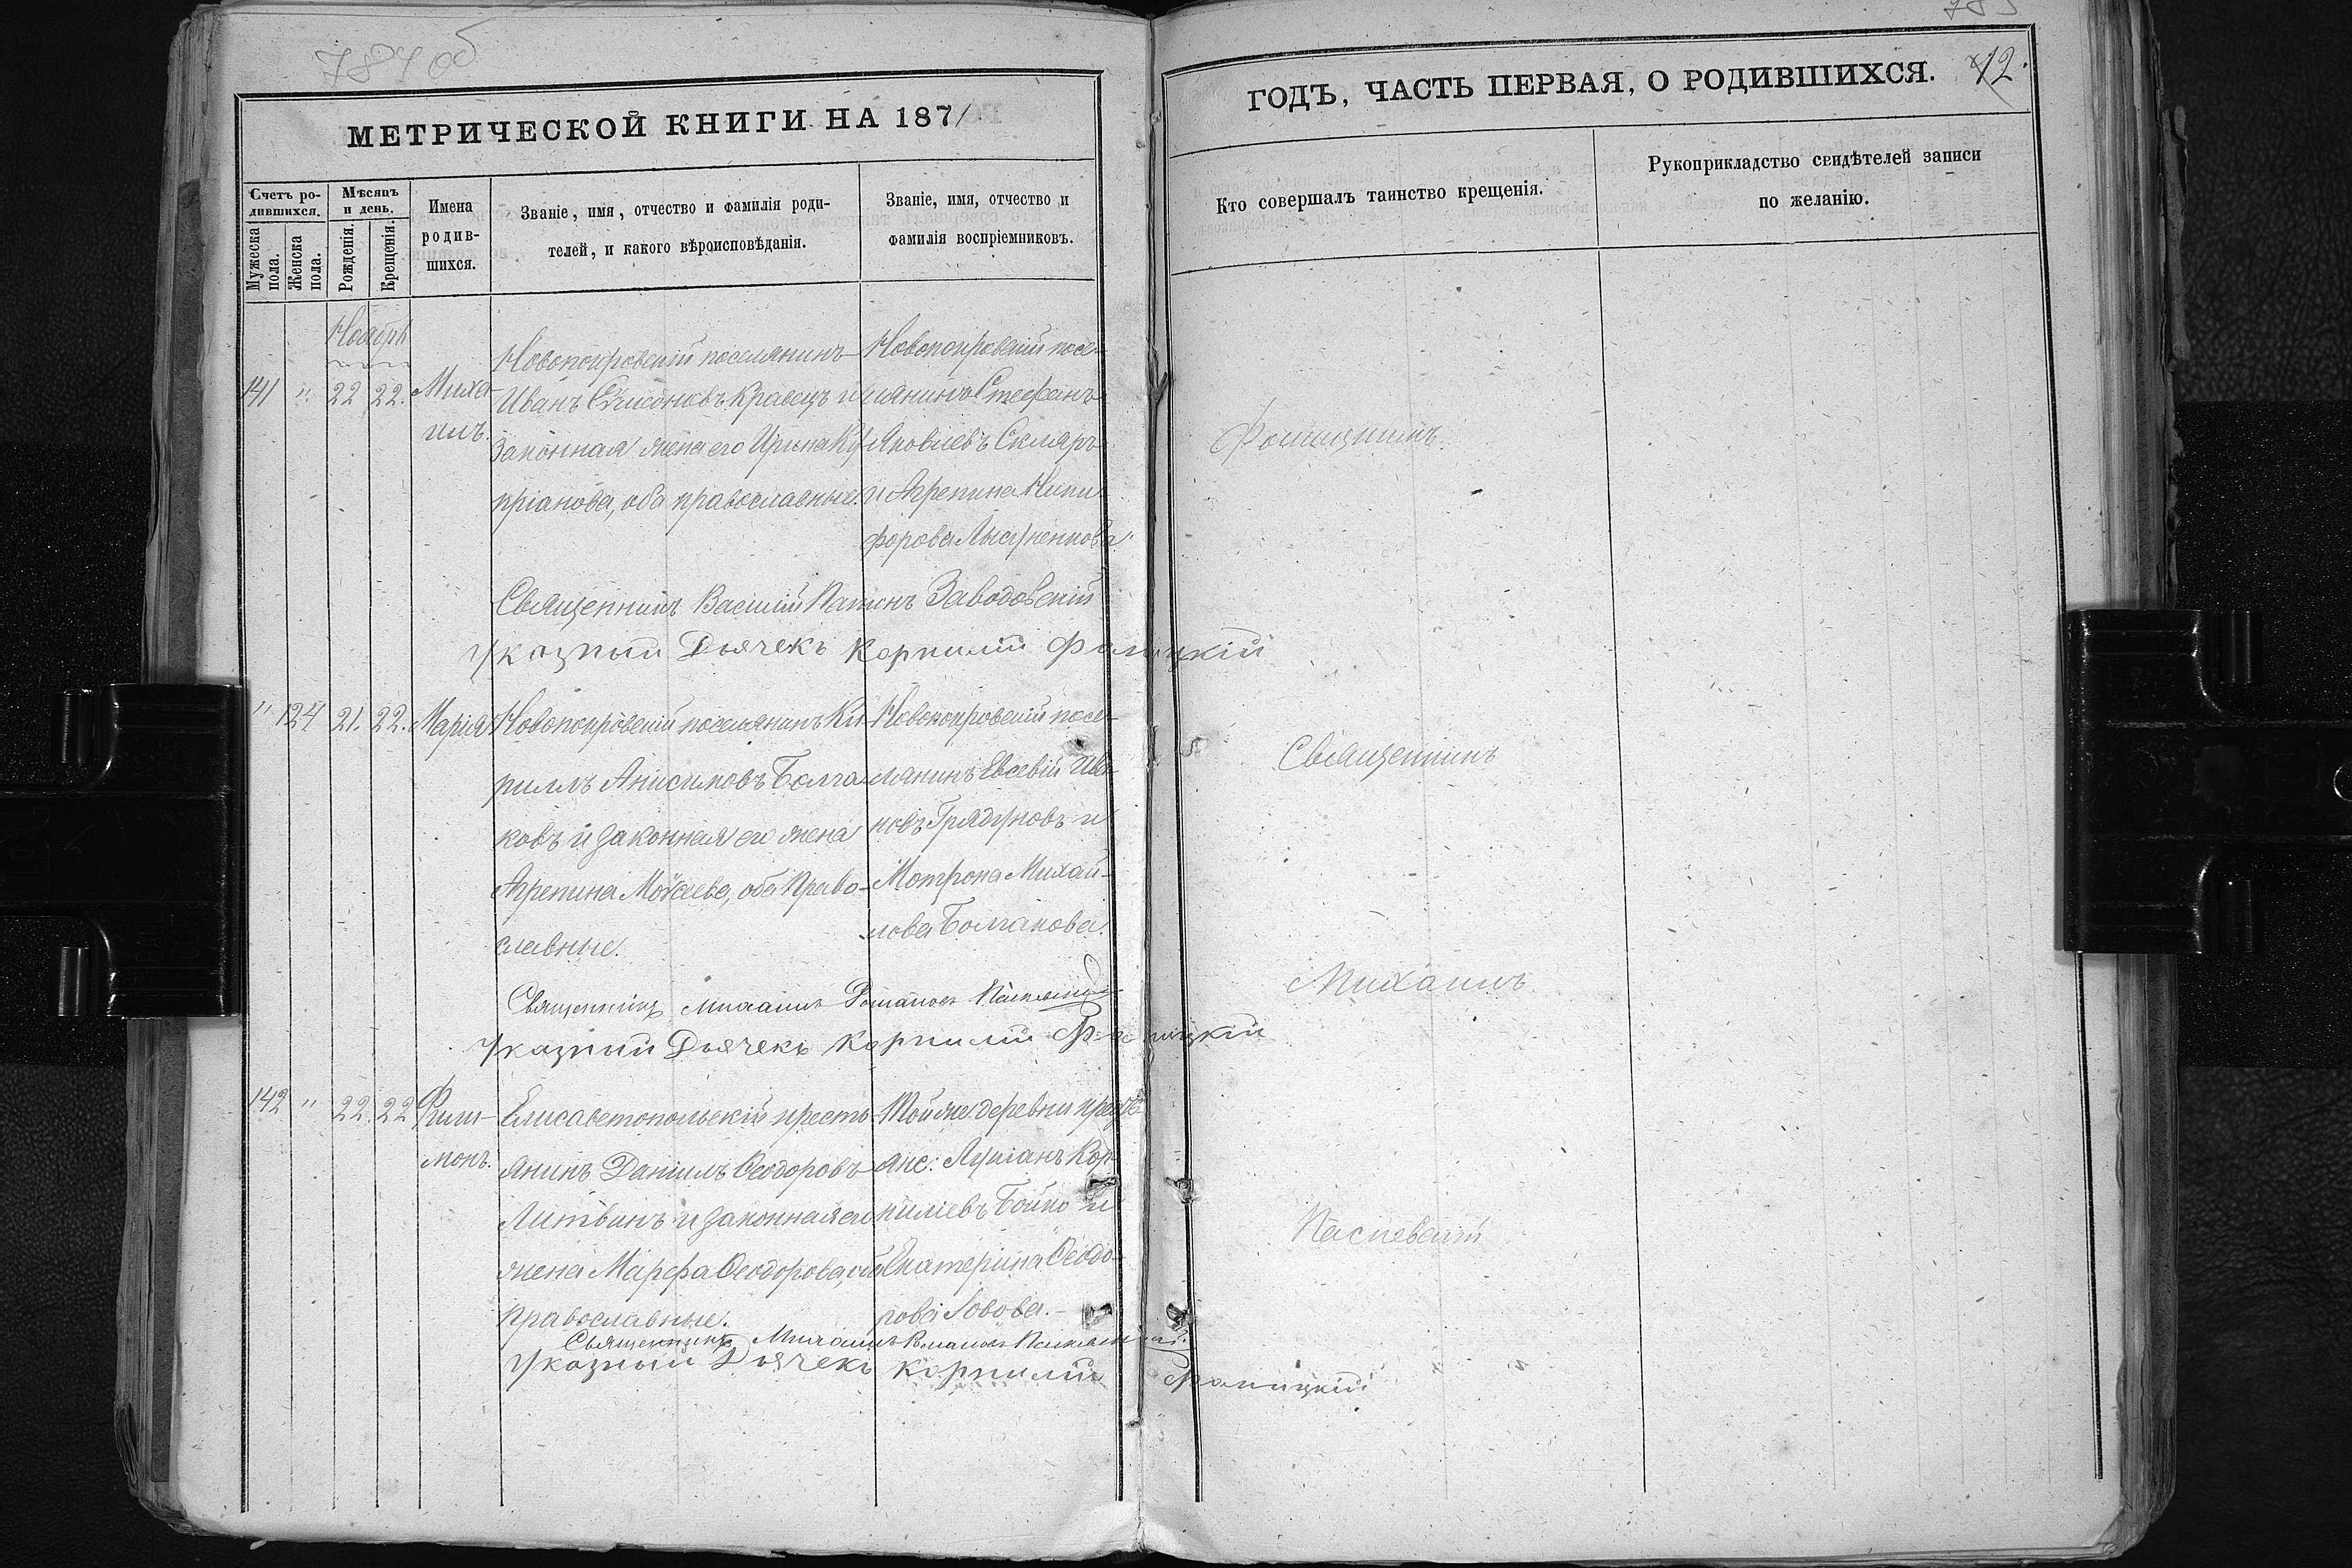 784 об
785
МЕТРИЧЕСКОЙ КНИГИ НА 1871
ГОДЪ, ЧАСТЬ ПЕРВАЯ, О РОДИВШИХСЯ.
12.
Счетъ ро-
дившихся.
Мужеска пола.
Женска пола.
Мѣсяцъ
и день.
Рожденія.
Крещенія.
Имена
родив-
шихся.
Званіе, имя, отчество и фамилія роди-
телей, и какого вѣроисповѣданія.
Званіе, имя, отчество и
фамилія воспріемниковъ.
Кто совершалъ таинство крещенія.
Рукоприкладство свидѣтелей записи
по желанію.
Ноябрь
141 " 22 22. Миха-
илъ.
Новопокровскій поселянинъ
Иванъ Кравецъ и
законная жена его Ирина Ку-
пріанова, оба православные.
Новопокровскій посе-
лянинъ Стефанъ
Яковлевъ Скляръ
и Агрепина Ники-
форова
Священникъ Василій Заводовскій
Указный Дьячекъ Корнилій
" 124 21. 22. Марія
Новопокровскій поселянинъ Ки-
риллъ Анисимовъ Болга-
ковъ и законная его жена
Агрепина Моѵсеева, оба Право-
славные.
Новопокровскій посе-
лянинъ Евсевій Ива-
новъ Грядуновъ и
Мотрона Михай-
лова Болгакова.
Священникъ Михаилъ Романовъ
Указный Дьячекъ Корнилій
142 " 22. 22 Фили-
монъ.
Елисаветопольскій кресть-
янинъ Даніилъ Ѳеодоровъ
Литвинъ и законная его
жена Марфа Ѳеодорова, оба
православные.
Той же деревни крест
янс: Лукіанъ Кор-
ниліевъ Бойко и
Екатерина Ѳеодо-
рова
Священникъ Михаилъ Романовъ
Указный Дьячекъ Корнилій
Священникъ
Михаилъ